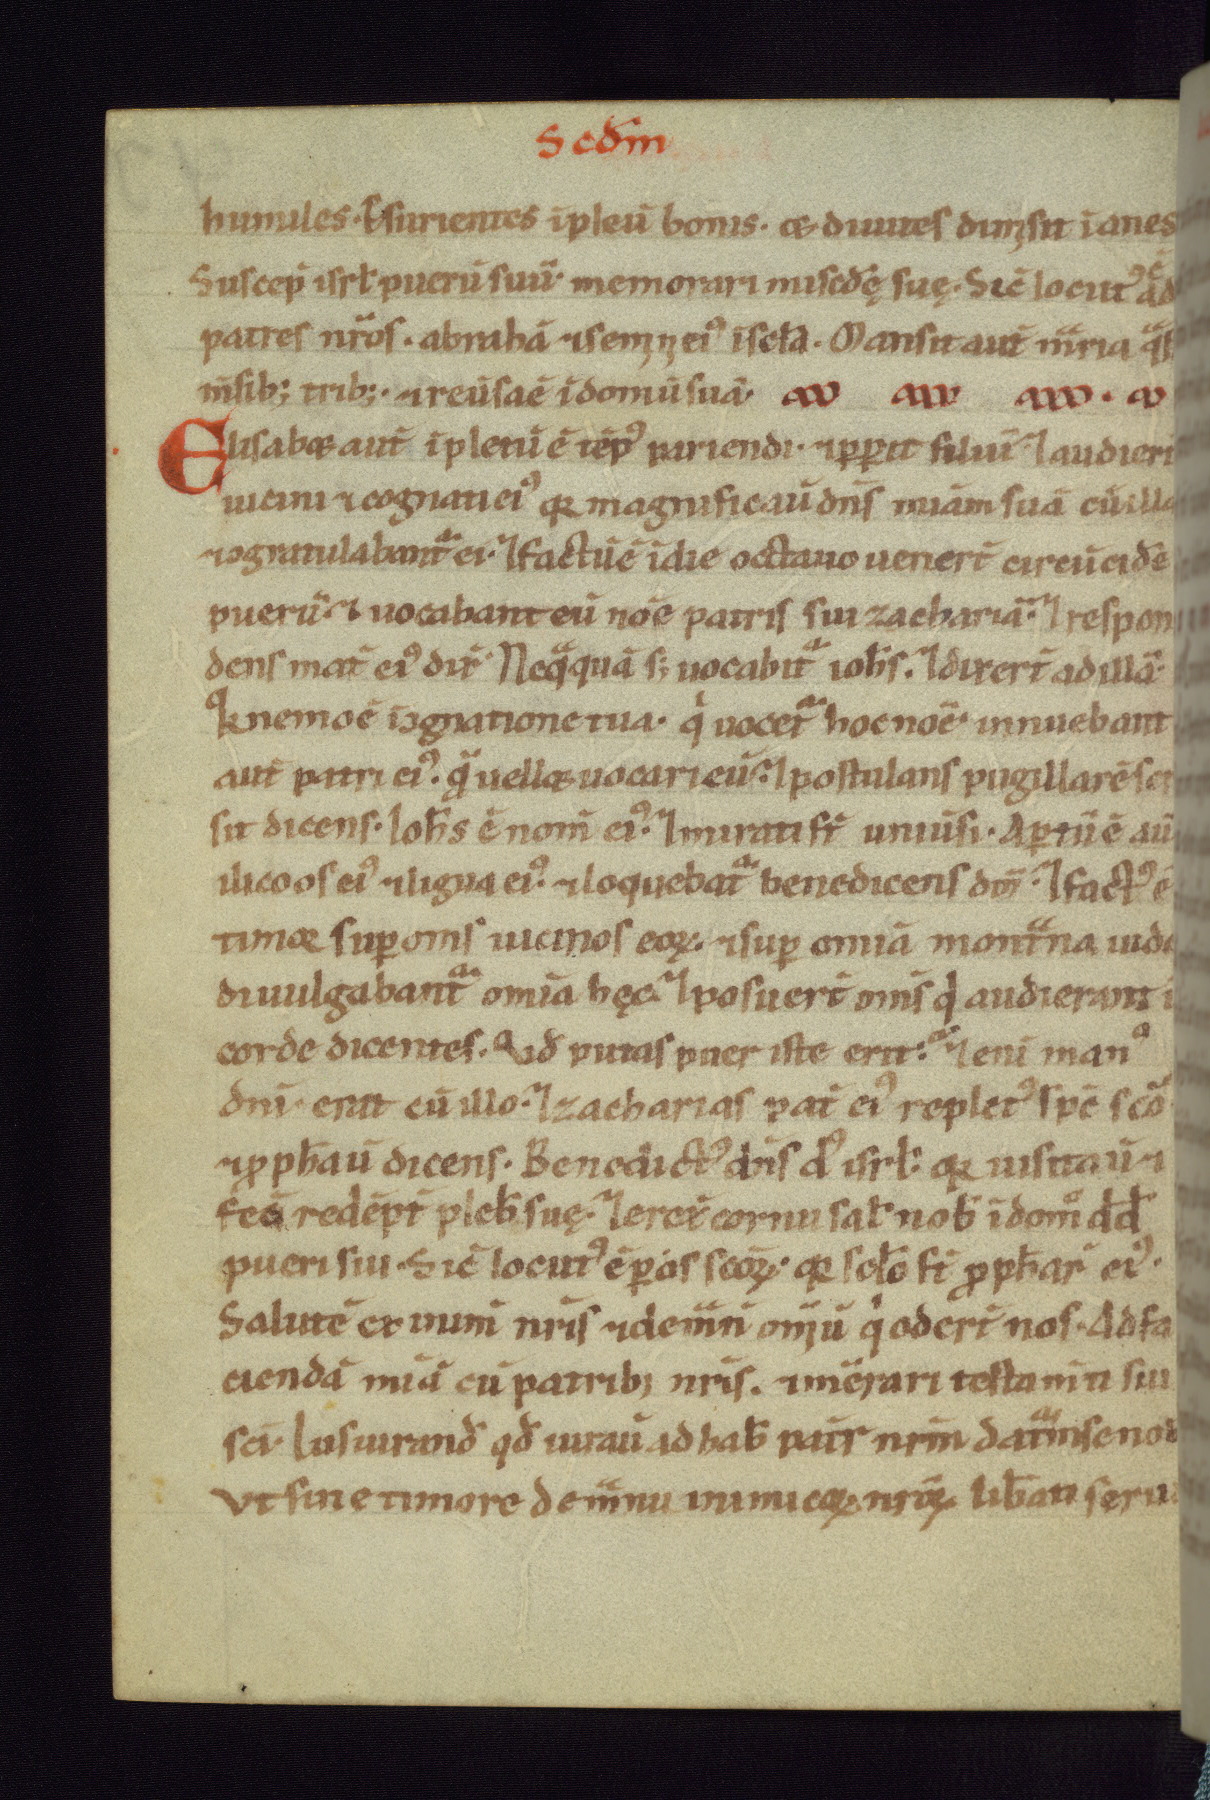 Scdm̄
humiles. Esurientes īpleū bonis. & diuites dimisit ianes
Suscep̄ isrl̄ puerū suū. memorari miscd̄ę suę. Sic̄ locutꝰ ē ad
patres nr̄os. abrahā ⁊ semini eiꝰ ī scl̄a. Mansit aut̄ m̄ria qͣsi
m̄sib; trib;. ⁊ reūsa ē ī domū suā.
Elisab& aut̄ īpletū ē tēpꝰ pariendi. ⁊ peꝑit filiū. I audier̄
uicini ⁊ cognati eiꝰ qr magnificau̅ dn̄s miām suā cū illa
⁊ ꝯgratulabantᷣ ei. I factū ē ī die octauo uener̄t circūcide
puerū. ⁊ uocabant eū noē patris sui zachariā. I respon
dens mat̄ eiꝰ dix̄. Neqͣquā s; uocabitᷣ ioh̄s. I dixer̄t ad illā.
Qr nemo ē ī ꝯgnatione tua. qͥ uocetᷣ hoc noē. innuebant
aut̄ patri eiꝰ. quē uell& uocari eū. I postulans pugillarē scr
sit dicens. Ioh̄s ē nom̄ eiꝰ. I mirati st̄ uniūsi. Aꝑtū ē aū
ilico os eiꝰ ⁊ ligua eiꝰ. ⁊ loquebatᷣ benedicens dm̄. I factꝰ ē
timor suꝑ om̄s uicinos eoꝝ. ⁊ suꝑ omiā montͣna iude
diuulgabantᷣ omīa hęc. I posuer̄t om̄s qͥ audierant i
corde dicentes. Qid putas puer iste erit. I eni manꝰ
dn̄i erat cū illo. I zacharias pat̄ eiꝰ repletꝰ spū scō
⁊ ꝓph̄au̅ dicens. Benedictꝰ dn̄s dꝰ isrl̄. qr uisitau̅ ⁊
fec̄ redēpt̄ pleb̄ suę. I erex̄ cornu sal̄ nob̄ ī domo dd̄
pueri sui. Sic̄ locutꝰ ē ꝑ os scōꝝ. qr scl̄o st̄ ꝓph̄ar̄ eiꝰ.
Salutē ex inim̄ nr̄is ⁊ de mͣn omīū qͥ oder̄t nos. Ad fa
ciendā miā cū patrib; nr̄is. ⁊ mēorari testam̄ti sui
sci. Iusiurand̄ qd̄ iurau̅ ad hab̄ patr̄ nr̄m daturͫ se nob̄
Vt sine timore de mͣnu inimicoꝝ nr̄oꝝ lib̄ati serui